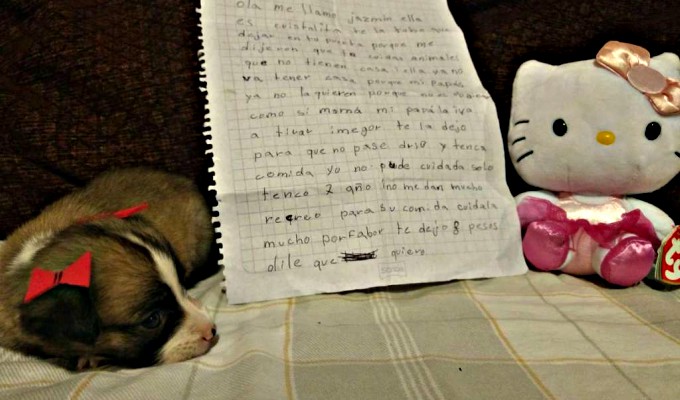 ola me llamo jazmin ella
es cristalita te la tube que
dejar en tu puerta porque me
dijeron que tu cuidas animales
que no tienen casa ella ya no
va tener casa porque mi papás
ya no la quieren porque no es
como si mamá mi papá la iva
a tirar imegor te la dejo
para que no pase drio y tenca
comida yo no pude cuidada solo
tenco 2 año ino me dan mucho
recreo para su comida cuidala
mucho porfabor te dejo 8 pesos
dile que quiero
ty